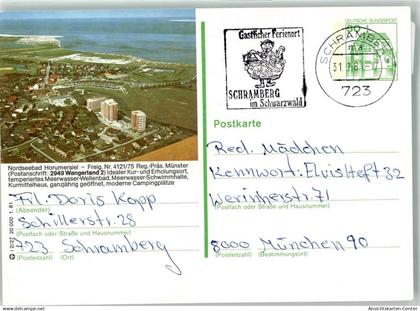 Gastlicher Ferienort
SCHRAMBERG
im Schwarzwald
SCHRAMBERG 1
ma
31.7.81
723
DEUTSCHE BUNDESPOST
Nordseebad Horumersiel – Freig. Nr. 4121/75 Reg.-Präs. Münster
(Postanschrift: 2949 Wangerland 2) Idealer Kur- und Erholungsort,
temperiertes Meerwasser-Wellenbad, Meerwasser-Schwimmhalle,
Kurmittelhaus, ganzjährig geöffnet, moderne Campingplätze
Frl. Doris Kopp
(Absender)
Schillerstr. 28
(Postfach oder Straße und Hausnummer)
723 Schramberg
(Postleitzahl) (Ort)
20 000 1. 81
Postkarte
Red. Mädchen
Kennwort: Elvis Heft 32
Werinherstr. 71
(Postfach oder Straße und Hausnummer)
8000 München 90
(Postleitzahl) (Bestimmungsort)
Ansichtskarten-Center